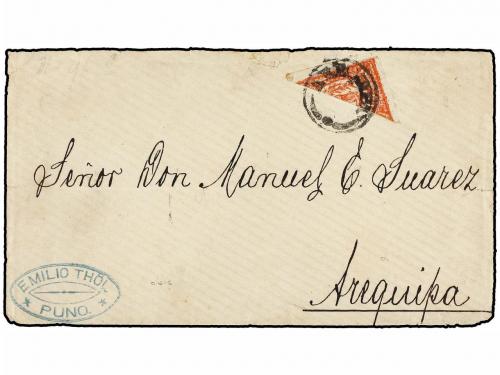 Señor Don Manuel E. Suarez
Arequipa
EMILIO THÖL
PUNO.